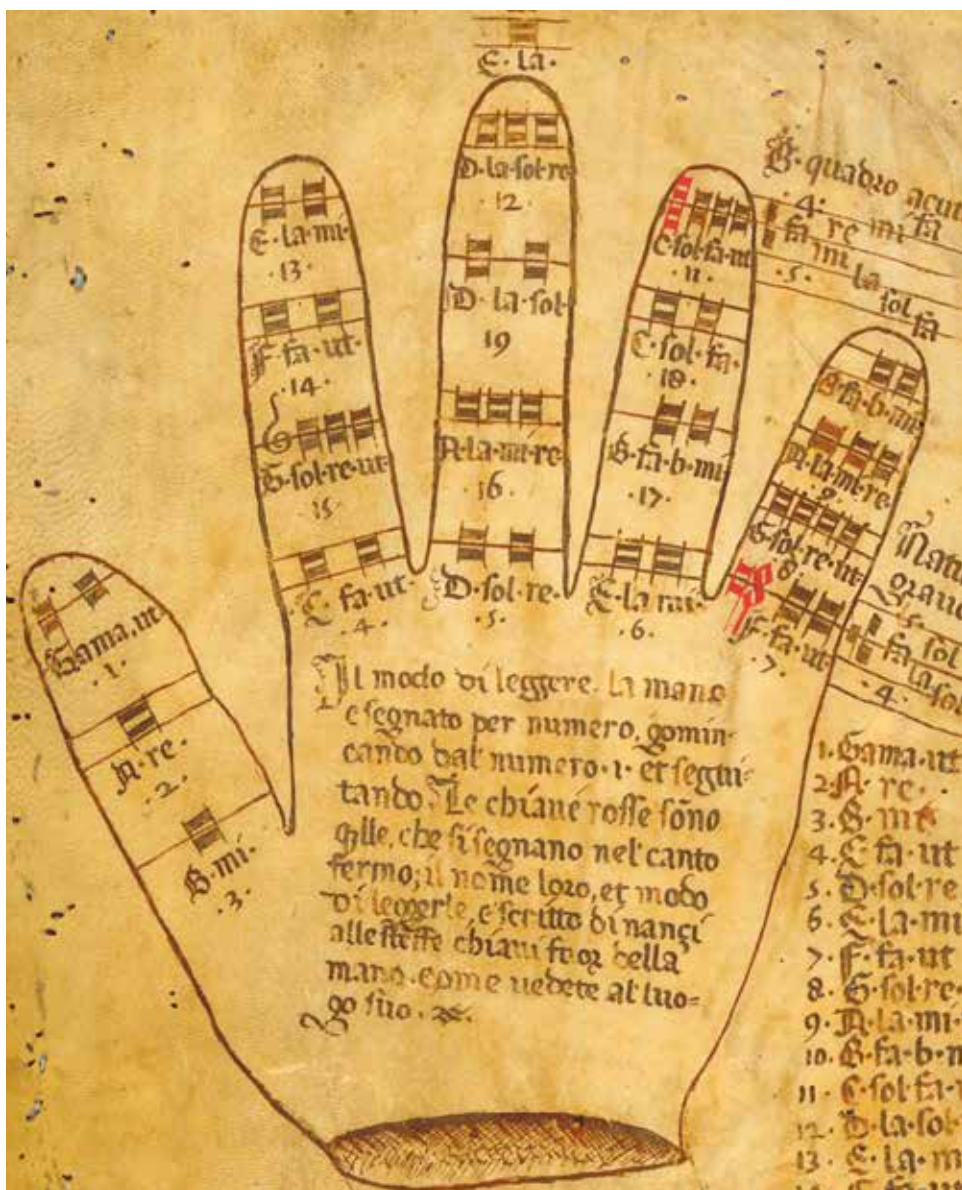 E · la ·
D · la · sol · re
· 12 ·
D · la · sol ·
19
A · la · mi · re ·
· 16 ·
D · sol · re ·
· 5 ·
E · la · mi ·
· 13 ·
F · fa · ut ·
· 14 ·
G · sol · re · ut ·
· 15 ·
C · fa · ut ·
· 4 ·
C · sol · fa · ut
· 11 ·
C · sol · fa ·
· 18 ·
B · fa · b · mi
· 17 ·
E · la · mi ·
· 6 ·
B · fa · b · mi
A · la · mi · re
· 9 ·
G · sol · re · ut ·
8
F · fa · ut
· 7 ·
Gama · ut ·
· 1 ·
A · re ·
· 2 ·
B · mi ·
· 3 ·
B · quadro acut
· 4 ·
fa re mi fa
fa mi la sol fa
· 5 ·
Natu
graue
5
fa sol
fa la sol
· 4 ·
Il modo di leggere la mano
e segnato per numero, gomin-
cando dal numero · 1 · et segui=
tando. Le chiaue rosse sono
qlle, che si segnano nel canto
fermo; il nome loro, et modo
di leggerle, e scritto dinançi
alle stesse chiaui foor della
mano, come uedete al luo=
go suo ·
1. Gama · ut
2. A · re ·
3. B · mi
4. C fa · ut
5. D · sol · re
6. E · la · mi
7. F · fa · ut
8. G · sol · re ·
9. A · la · mi ·
10. B · fa · b · m
11. C · sol fa ·
12. D · la · sol ·
13. E · la · m